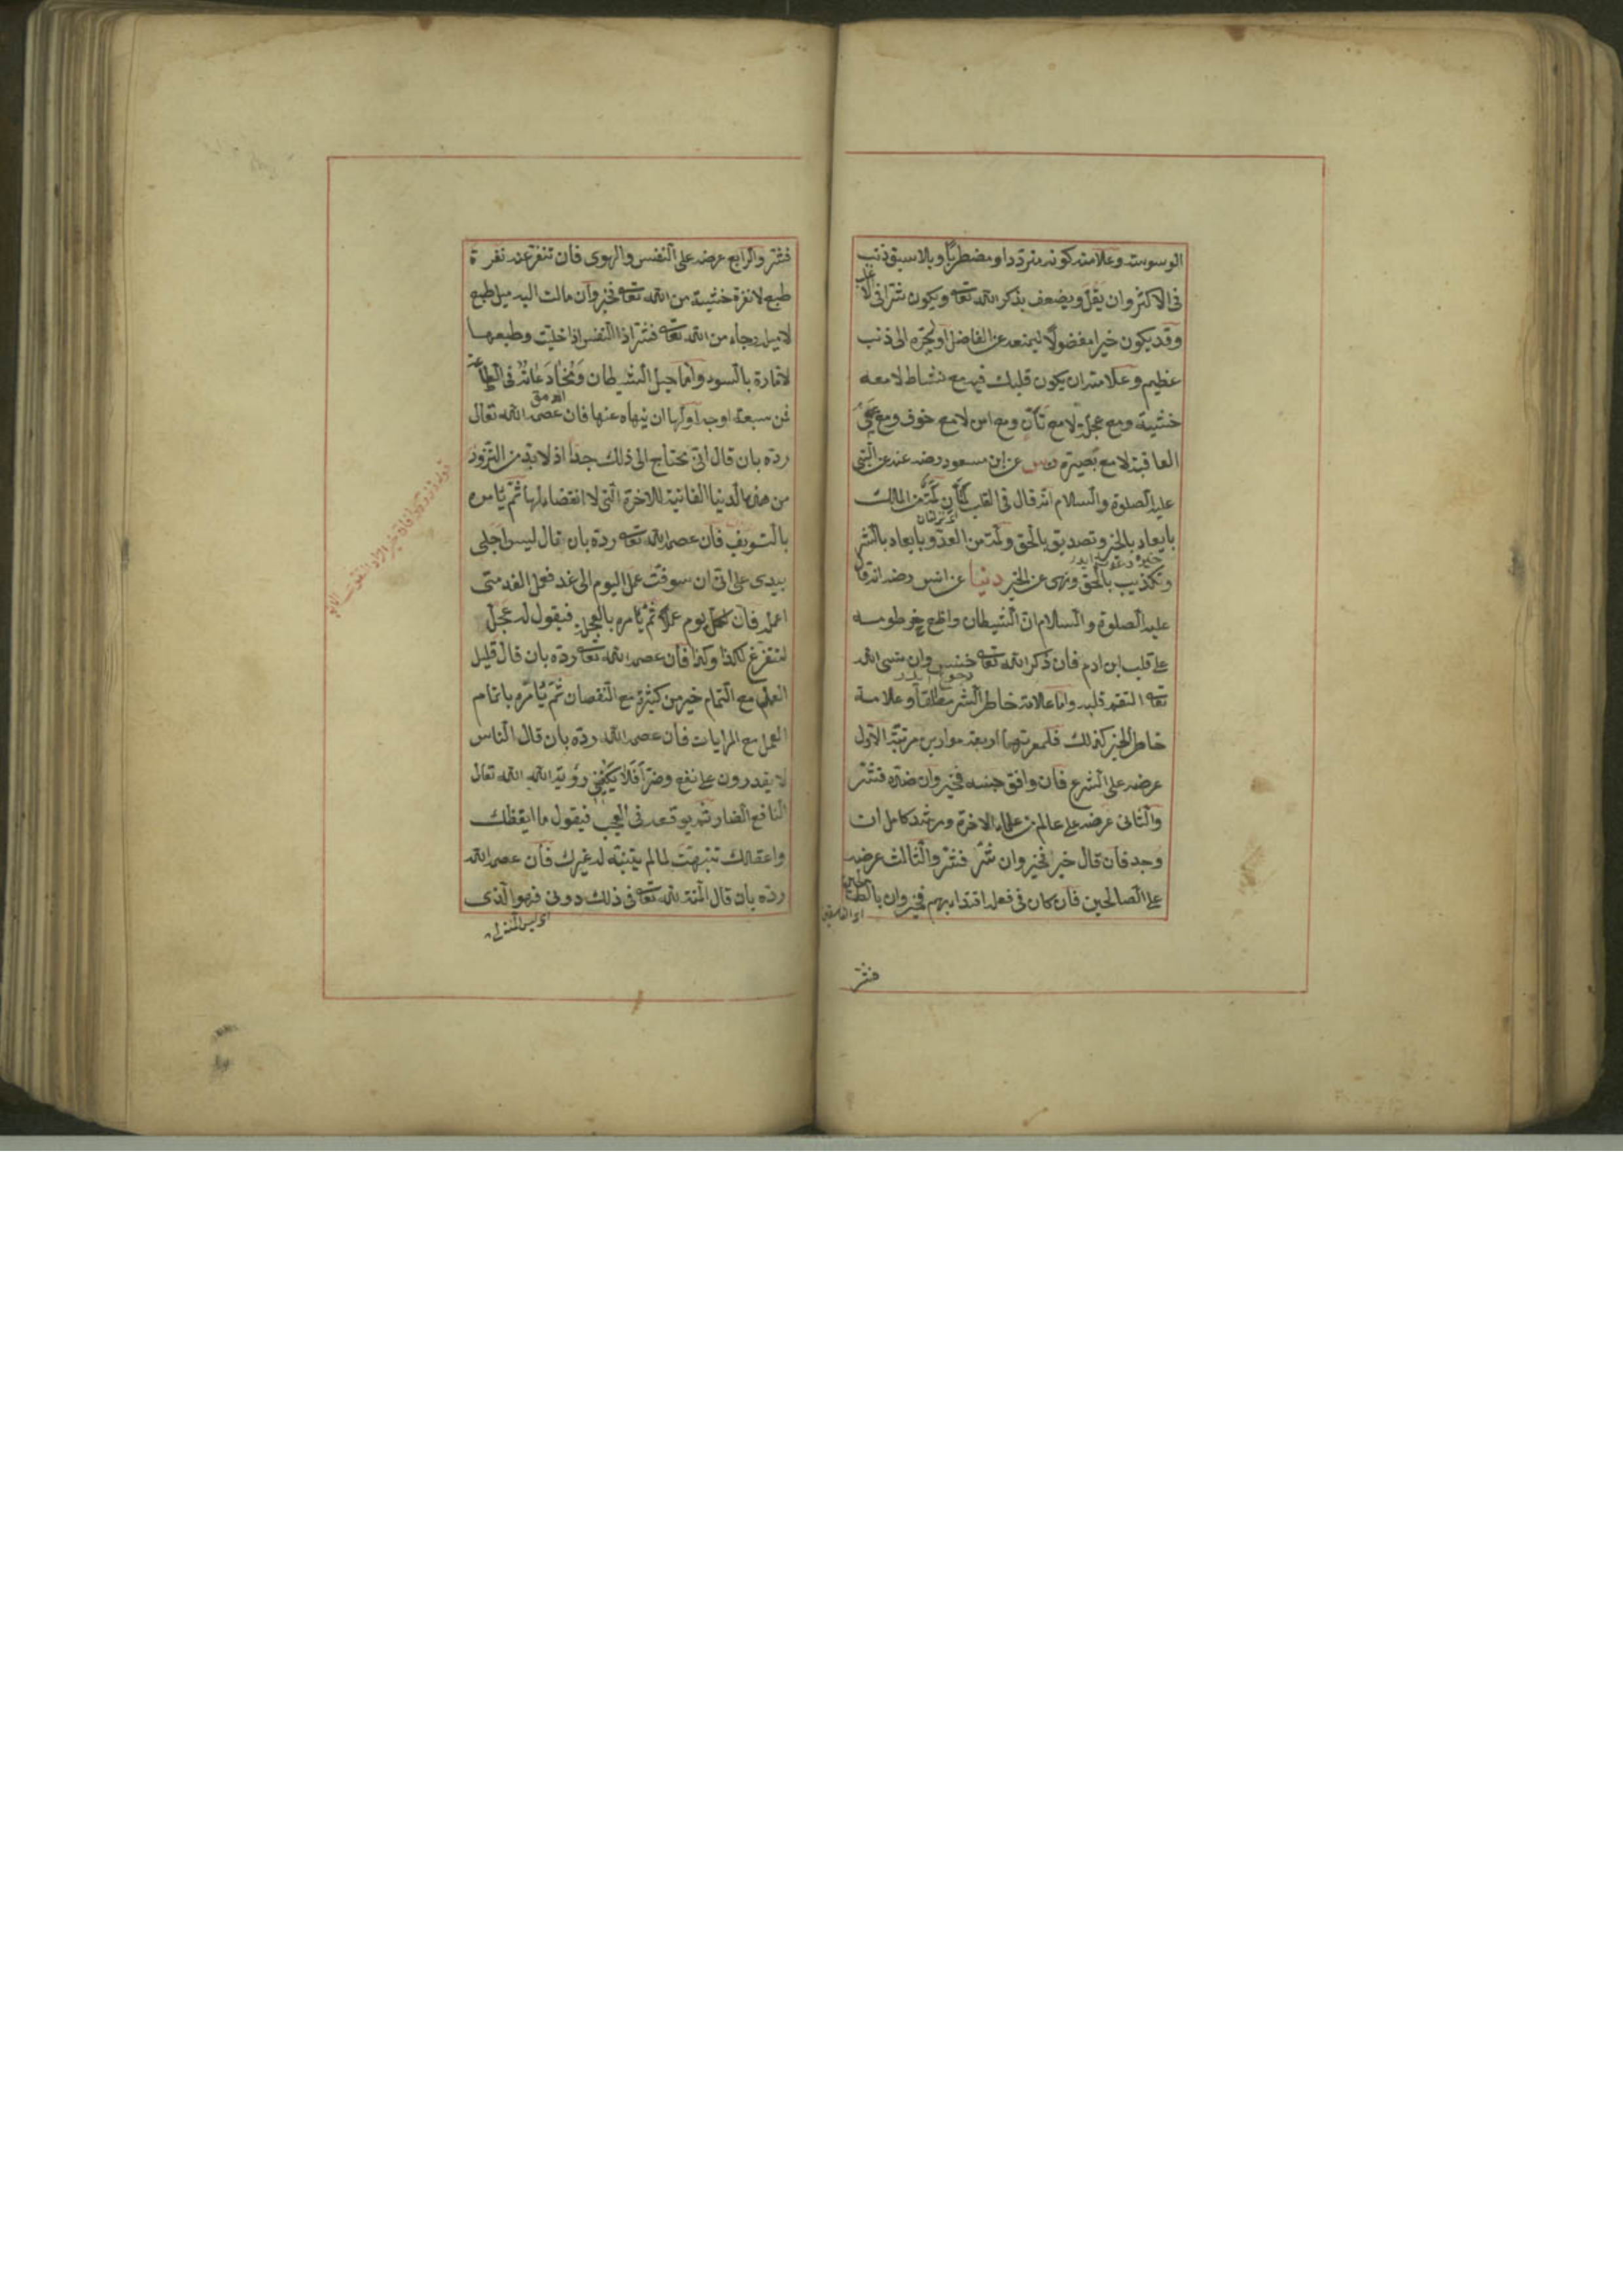 الوسوسة وعلامته كونه مترددا ومضطربا وبلا سبق ذنب
فى الاكثر وان يقل ويضعف بذكر الله تعالى ويكون شرا فى الاغلب
وقد يكون خيرا مفضولا ليمنعه عن الفاضل او ليجره الى ذنب
عظيم وعلامته ان يكون قلبك فيه مع نشاط لا مع
خشية ومع عجلة لا مع تأن ومع امن لا مع خوف ومع عمى
العاقبة لا مع بصيرة عن ابن مسعود رضه عنه عن النبى
عليه الصلوة والسلام انه قال فى القلب لمتان لمة من الملك
اى نزلتان
بايعاد بالخير وتصديق بالحق ولمة من العدو بايعاد بالشر
وتكذيب بالحق ونهى عن الخير دنيا عن انس رضه انه قال
عليه الصلوة والسلام ان الشيطان واضع خرطومه
على قلب ابن ادم فان ذكر الله تعالى خنس وان نسى الله
تعالى التقم قلبه واما علامة خاطر الشر مطلقا وعلامة
خاطر الخير كذلك فلمعرفتهما اربعة موازين مرتبة الاول
عرضه على الشرع فان وافق جنسه فخير وان ضده فشر
والثانى عرضه على عالم من علماء الاخرة ومرشد كامل ان
وجد فان قال خير فخير وان شر فشر والثالث عرضه
على الصالحين فان كان فى فعله اقتداء بهم فخير وان بالطالحين
فشر
فشر والرابع عرضه على النفس والهوى فان تنفر عنه نفرة
طبع لا نفرة خشية من الله تعالى فخير وان مالت اليه ميل طبع
لا ميل رجاء من الله تعالى فشر اذ النفس اذا خليت وطبعها
لامارة بالسوء واما حيل الشيطان ومخادعاته فى الطاعة
فمن سبعة اوجه اولها ان ينهاه عنها فان عصمه الله تعالى
رده بان قال انى محتاج الى ذلك جدا اذ لا بد من التزود
من هذه الدنيا الفانية للاخرة التى لا انقضاء لها ثم يأمره
بالتسويف فان عصمه الله تعالى رده بان قال ليس اجلى
بيدى على انى ان سوفت عمل اليوم الى غد فعمل الغد متى
اعمله فان لكل يوم عملا ثم يأمره بالعجلة فيقول له عجل
لتتفرغ لكذا وكذا فان عصمه الله تعالى رده بان قال قليل
العمل مع التمام خير من كثيره مع النقصان ثم يأمره باتمام
العمل مع المرايات فان عصمه الله رده بان قال الناس
لا يقدرون على نفع وضر افلا يكفينى رؤية الله الله تعالى
النافع الضار ثم يوقعه فى العجب فيقول ما ايقظك
واعقلك تنبهت لما لم يتنبه له غيرك فان عصمه الله
رده بان قال المنة لله تعالى فى ذلك دونى فهو الذى
اى ليس المنة لى